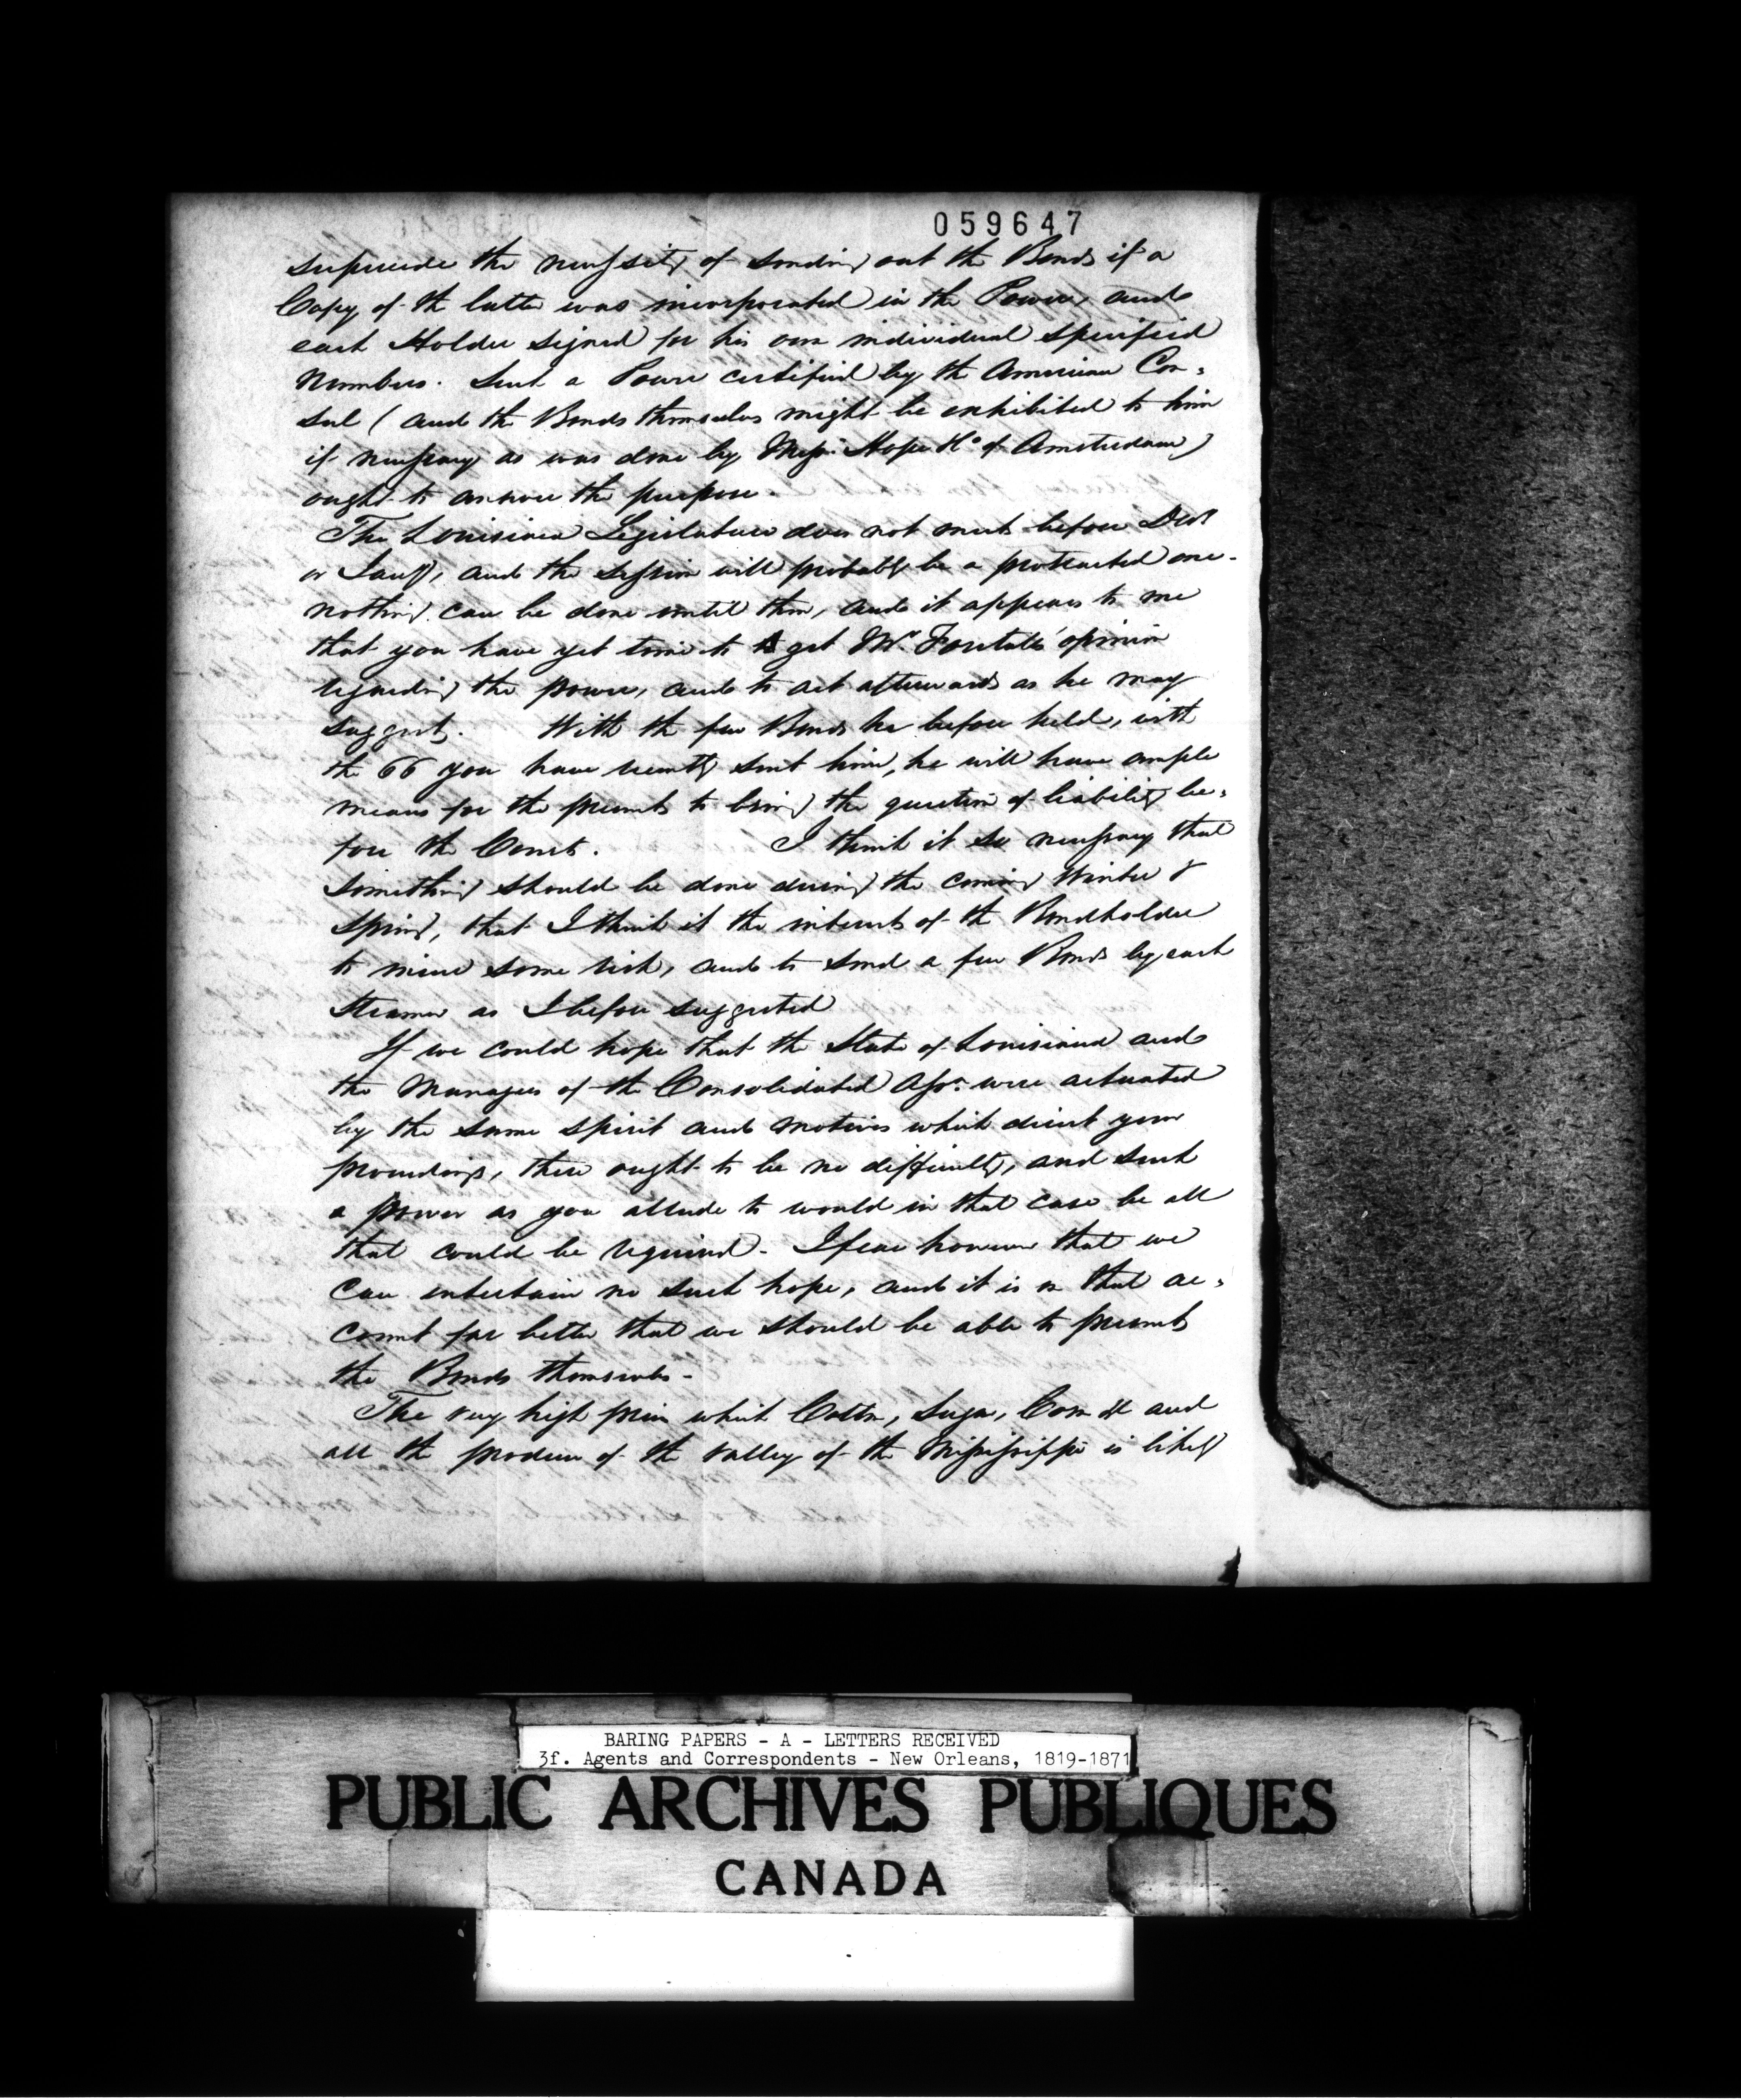 059647
supersede the necessity of sending out the Bonds if a
Copy of the latter was incorporated in the Power, and
each Holder signed for his own individual specified
numbers. Such a Power certified by the American Con=
sul (and the Bonds themselves might be exhibited to him
if necessary as was done by Messrs Hope & Co of Amsterdam)
ought to answer the purpose.
The Louisiana Legislature does not meet before Decr
or Jany, and the session will probably be a protracted one -
nothing can be done until then, and it appears to me
that you have yet time to get Mr. Forstall's opinion
regarding the power, and to act afterwards as he may
suggest. With the few Bonds he before held, with
the 66 you have recently sent him, he will have ample
means for the present to bring the question of liability be=
fore the Courts. I think it so necessary that
something should be done during the coming Winter &
Spring, that I think it the interests of the Bondholders
to incur some risk, and to send a few Bonds by each
Steamer as I before suggested
If we could hope that the State of Louisiana and
the Managers of the Consolidated Assn. were actuated
by the same spirit and motives which direct your
proceedings, there ought to be no difficulty, and such
a power as you allude to would in that case be all
that could be required - I fear however that we
can entertain no such hope, and it is on that ac=
count far better that we should be able to present
the Bonds themselves -
The very high price which Cotton, Sugar, Corn &c and
all the produce of the valley of the Mississippi is likely
BARING PAPERS - A - LETTERS RECEIVED
3f. Agents and Correspondents - New Orleans, 1819-1871
PUBLIC ARCHIVES PUBLIQUES
CANADA